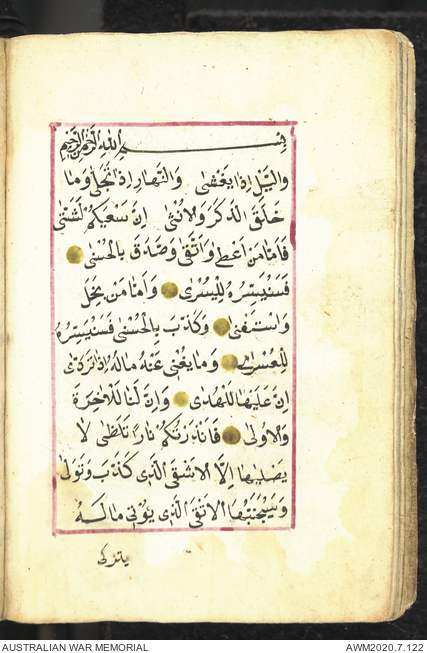 بِسْــــــمِ اللهِ الرَّحْمٰنِ الرَّحِيمِ
وَالَّيْلِ اِذَا يَغْشٰى وَالنَّهَارِ اِذَا تَجَلّٰى وَمَا
خَلَقَ الذَّكَرَ وَلْاُنْثٰى اِنَّ سَعْيَكُمْ لَشَتّٰى
فَاَمَّا مَنْ اَعْطٰى وَاتَّقٰى وَصَدَّقَ بِالْحُسْنٰى
فَسَنُيَسِّرُهُ لِلْيُسْرٰى وَاَمَّا مَنْ بَخِلَ
وَاسْتَغْنٰى وَكَذَّبَ بِالْحُسْنٰى فَسَنُيَسِّرُهُ
لِلْعُسْرٰى وَمَا يُغْنٖى عَنْهُ مَالُهُ اِذَا تَرَدّٰى
اِنَّ عَلَيْهَا لَلْهُدٰى وَاِنَّ لَنَا لَلْاٰخِرَةَ
وَالْاُولٰى فَاَنْذَرْتُكُمْ نَارًا تَلَظّٰى لَا
يَصْلٰيهَا اِلَّا الْاَشْقٰى الَّذٖى كَذَّبَ وَتَوَلّٰى
وَسَيُجَنَّبُهَا الْاَتْقَى الَّذٖى يُؤْتٖى مَالَــهُ
يتزكى
AUSTRALIAN WAR MEMORIAL AWM2020.7.122